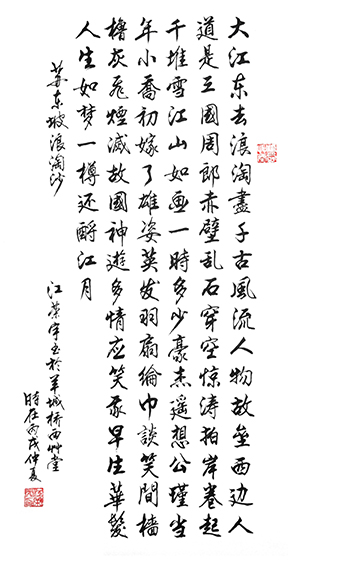 大江东去浪淘盡千古風流人物故壘西边人
道是三國周郎赤壁乱石穿空惊涛拍岸卷起
千堆雪江山如画一時多少豪杰遥想公瑾当
年小喬初嫁了雄姿英发羽扇綸巾談笑間檣
櫓灰飛煙滅故國神遊多情应笑我早生華髮
人生如梦一樽还酹江月
苏东坡浪淘沙
江荣宇书於羊城桥西艸堂
時在丙戌仲夏